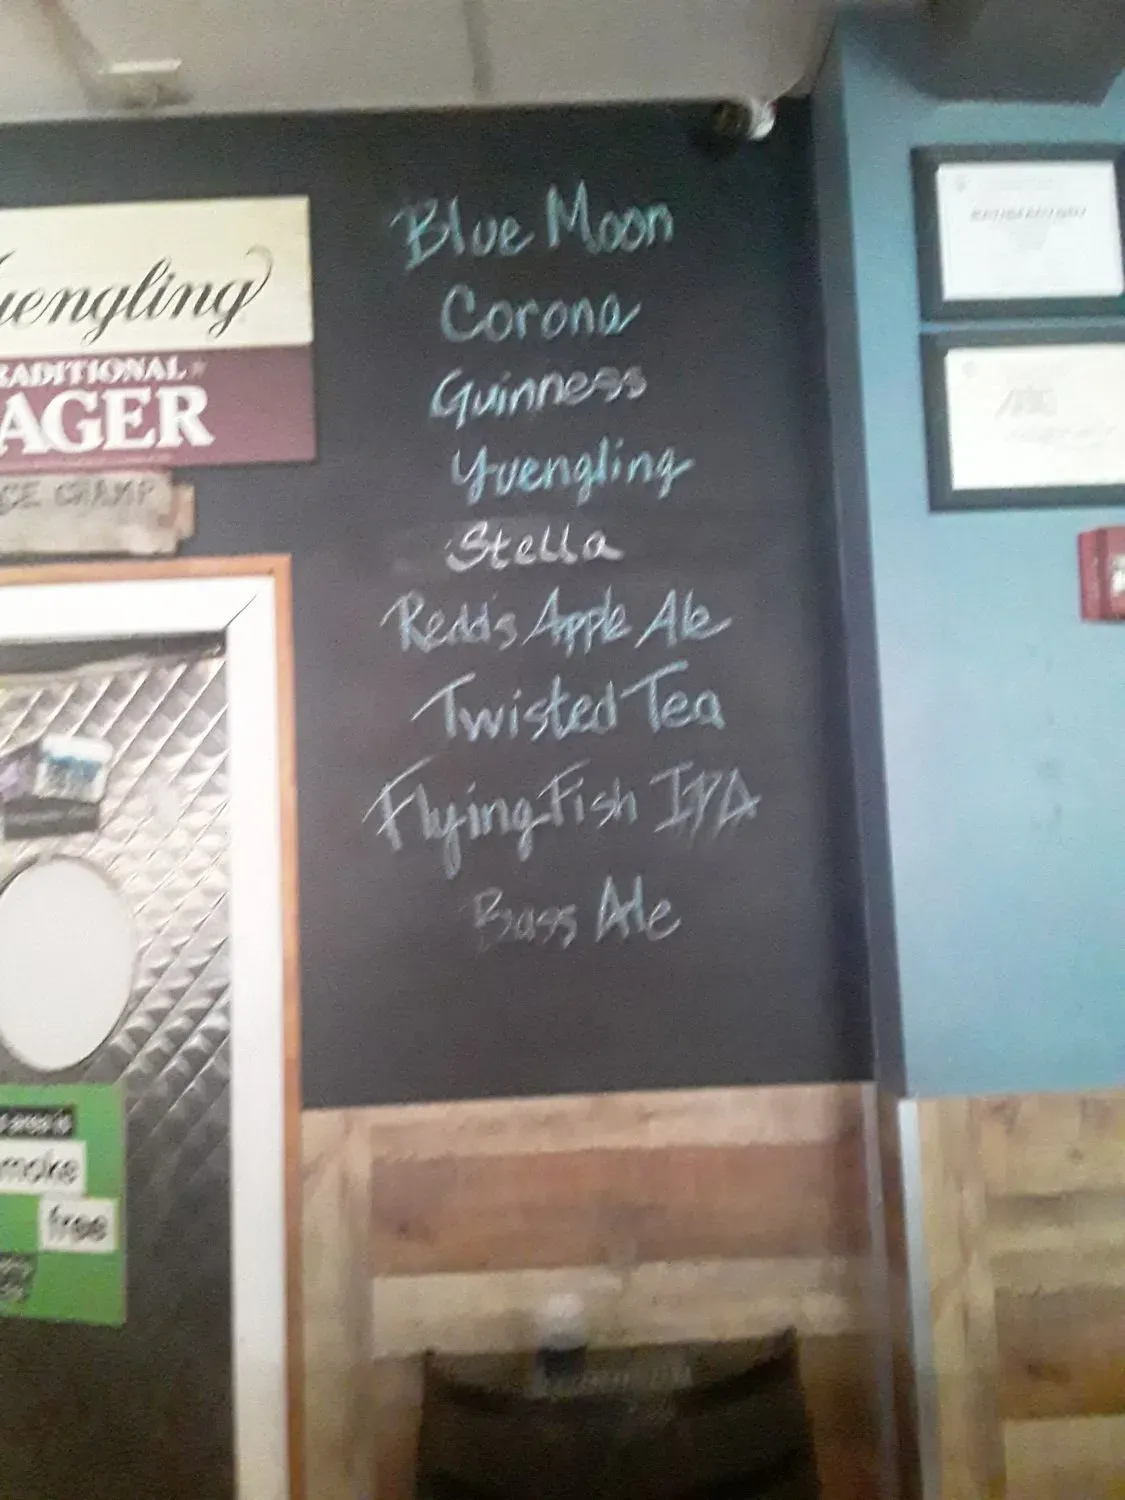 uengling
RADITIONAL
AGER
CE CHAMP
Blue Moon
Corona
Guinness
Yuengling
Stella
Redd's Apple Ale
Twisted Tea
Flying Fish IPA
Bass Ale
area is
moke
free